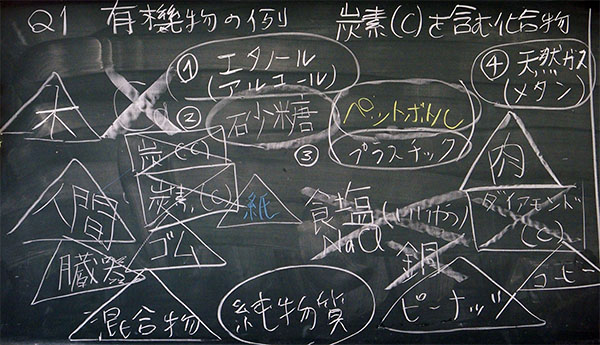 Q1 有機物の例 炭素(C)を含む化合物
① エタノール
(アルコール)
④ 天然ガス
(メタン)
木
② 石少糖
ペットボトル
炭(C)
③ プラスチック
肉
人間
炭素(C)
紙
食塩
NaCl
ダイアモンド
(C)
臓器
ゴム
銅
コーヒー
混合物
純物質
ピーナッツ